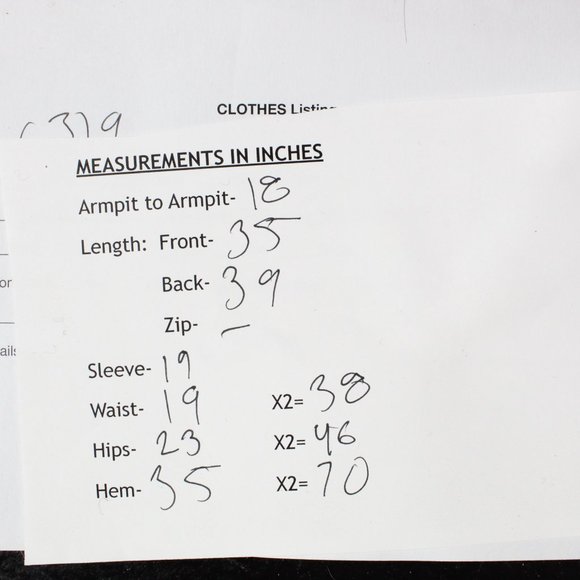 CLOTHES
319
MEASUREMENTS IN INCHES
Armpit to Armpit- 18
Length: Front- 35
Back- 39
Zip- –
Sleeve- 19
Waist- 19 X2= 38
Hips- 23 X2= 46
Hem- 35 X2= 70